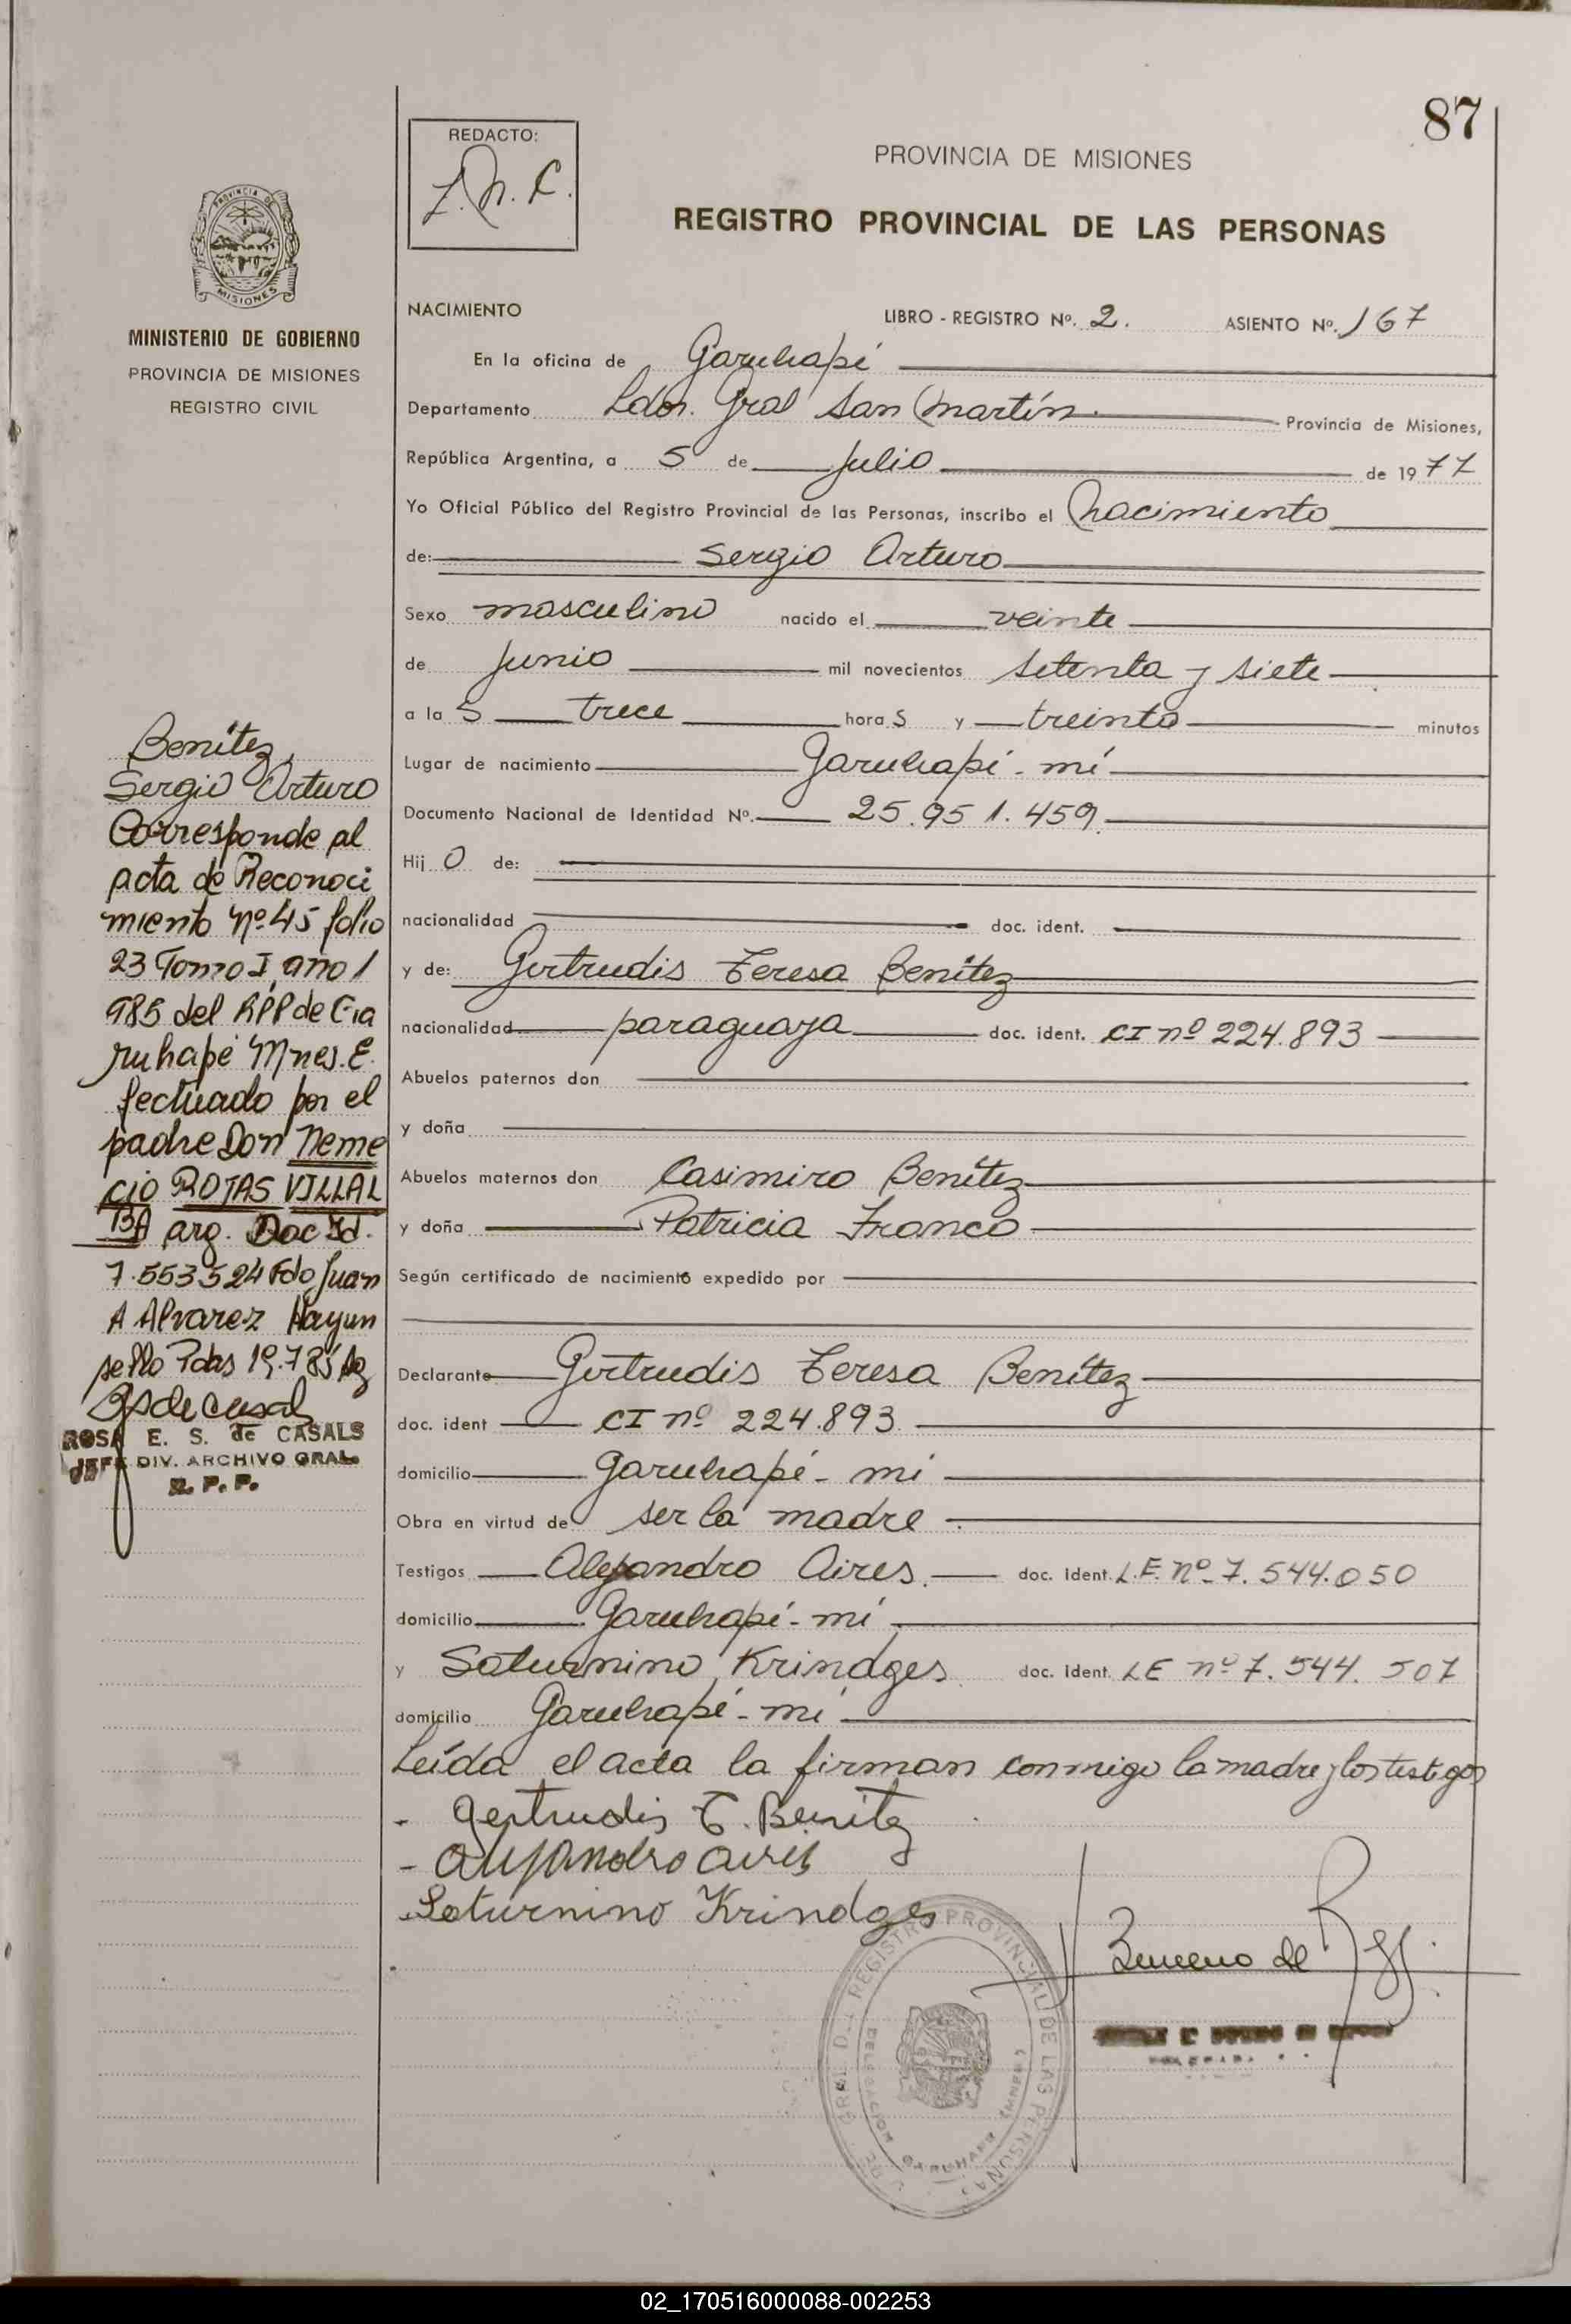 87
REDACTO:
PROVINCIA DE MISIONES
REGISTRO PROVINCIAL DE LAS PERSONAS
PROVINCIA DE
MISIONES
MINISTERIO DE GOBIERNO
PROVINCIA DE MISIONES
REGISTRO CIVIL
NACIMIENTO LIBRO - REGISTRO Nº. 2. ASIENTO Nº. 167
En la oficina de Garuhapé
Departamento Ldor. Gral San Martín. Provincia de Misiones,
República Argentina, a 5 de Julio de 1977
Yo Oficial Público del Registro Provincial de las Personas, inscribo el nacimiento
de: Sergio Arturo
Sexo masculino nacido el veinte
de Junio mil novecientos setenta y siete
a la s trece hora s y treinta minutos
Lugar de nacimiento Garuhapé - mí
Documento Nacional de Identidad Nº. 25.951.459.
Hij o de:
nacionalidad doc. ident.
y de: Gertrudis Teresa Benítez
nacionalidad paraguaya doc. ident. CI nº 224.893
Abuelos paternos don
y doña
Abuelos maternos don Casimiro Benítez
y doña Patricia Franco
Según certificado de nacimiento expedido por
Declarante Gertrudis Teresa Benítez
doc. ident CI nº 224.893.
domicilio Garuhapé - mí
Obra en virtud de ser la madre.
Testigos Alejandro Aires. doc. Ident. L.E. nº 7.544.050
domicilio Garuhapé - mí
y Saturnino Krindges doc. Ident. LE nº 7.544.507
domicilio Garuhapé - mí
Leída el acta la firman conmigo la madre y los testigos
- Gertrudis T. Benitez
- Alejandro aires
- Saturnino Krindges
Benítez,
Sergio Arturo
Corresponde al
acta de Reconoci
miento Nº 45 folio
23 Tomo I, año 1
985 del RPP de Ga
ruhapé Mnes. E
fectuado por el
padre Don Neme
cio ROJAS VILLAL
BA arg. Doc Id.
7.553524 Fdo Juan
A Alvarez Hay un
sello Pdas 19.7.85
ROSA E. S. de CASALS
JEFE DIV. ARCHIVO GRAL.
R. P. P.
REGISTRO PROVINCIAL DE LAS PERSONAS
DELEGACION GARUHAPE
02_170516000088-002253